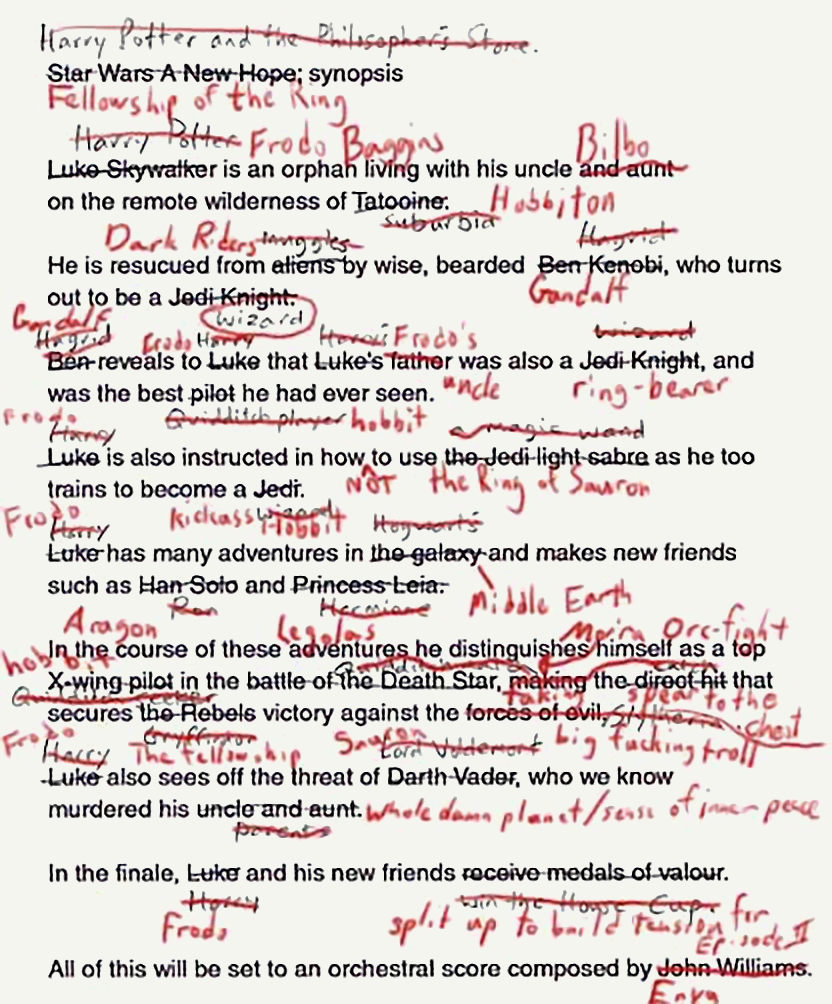 Harry Potter and the Philosopher's Stone.
Star Wars A New Hope; synopsis
Fellowship of the Ring
Harry Potter Frodo Baggins Bilbo
Luke Skywalker is an orphan living with his uncle and aunt
on the remote wilderness of Tatooine. Hobbiton
suburbia
Dark Riders muggles Hagrid
He is resucued from aliens by wise, bearded Ben Kenobi, who turns
out to be a Jedi Knight. Gandalf
Gandalf wizard
Hagrid Frodo Harry Harry's Frodo's wizard
Ben reveals to Luke that Luke's father was also a Jedi Knight, and
was the best pilot he had ever seen. uncle ring-bearer
Frodo Quidditch player hobbit a magic wand
Harry
Luke is also instructed in how to use the Jedi light sabre as he too
trains to become a Jedi. NOT the Ring of Sauron
Frodo Harry kickass wizard Hobbit Hogwarts
Luke has many adventures in the galaxy and makes new friends
such as Han Solo and Princess Leia. Middle Earth
Ron Hermione
Aragon Legolas Moira Orc-fight
In the course of these adventures he distinguishes himself as a top
hobbit Quidditch match catch
X-wing pilot in the battle of the Death Star, making the direct hit that
Quidditch seeker taking spear to the
secures the Rebels victory against the forces of evil, Slytherin. chest
Frodo Gryffindor Sauron
Harry The fellowship Lord Voldemort big fucking troll
Luke also sees off the threat of Darth Vader, who we know
murdered his uncle and aunt. whole damn planet/sense of inner peace
parents
In the finale, Luke and his new friends receive medals of valour.
Harry win the House Cup. for
Frodo split up to build tension Episode II
All of this will be set to an orchestral score composed by John Williams.
Enya